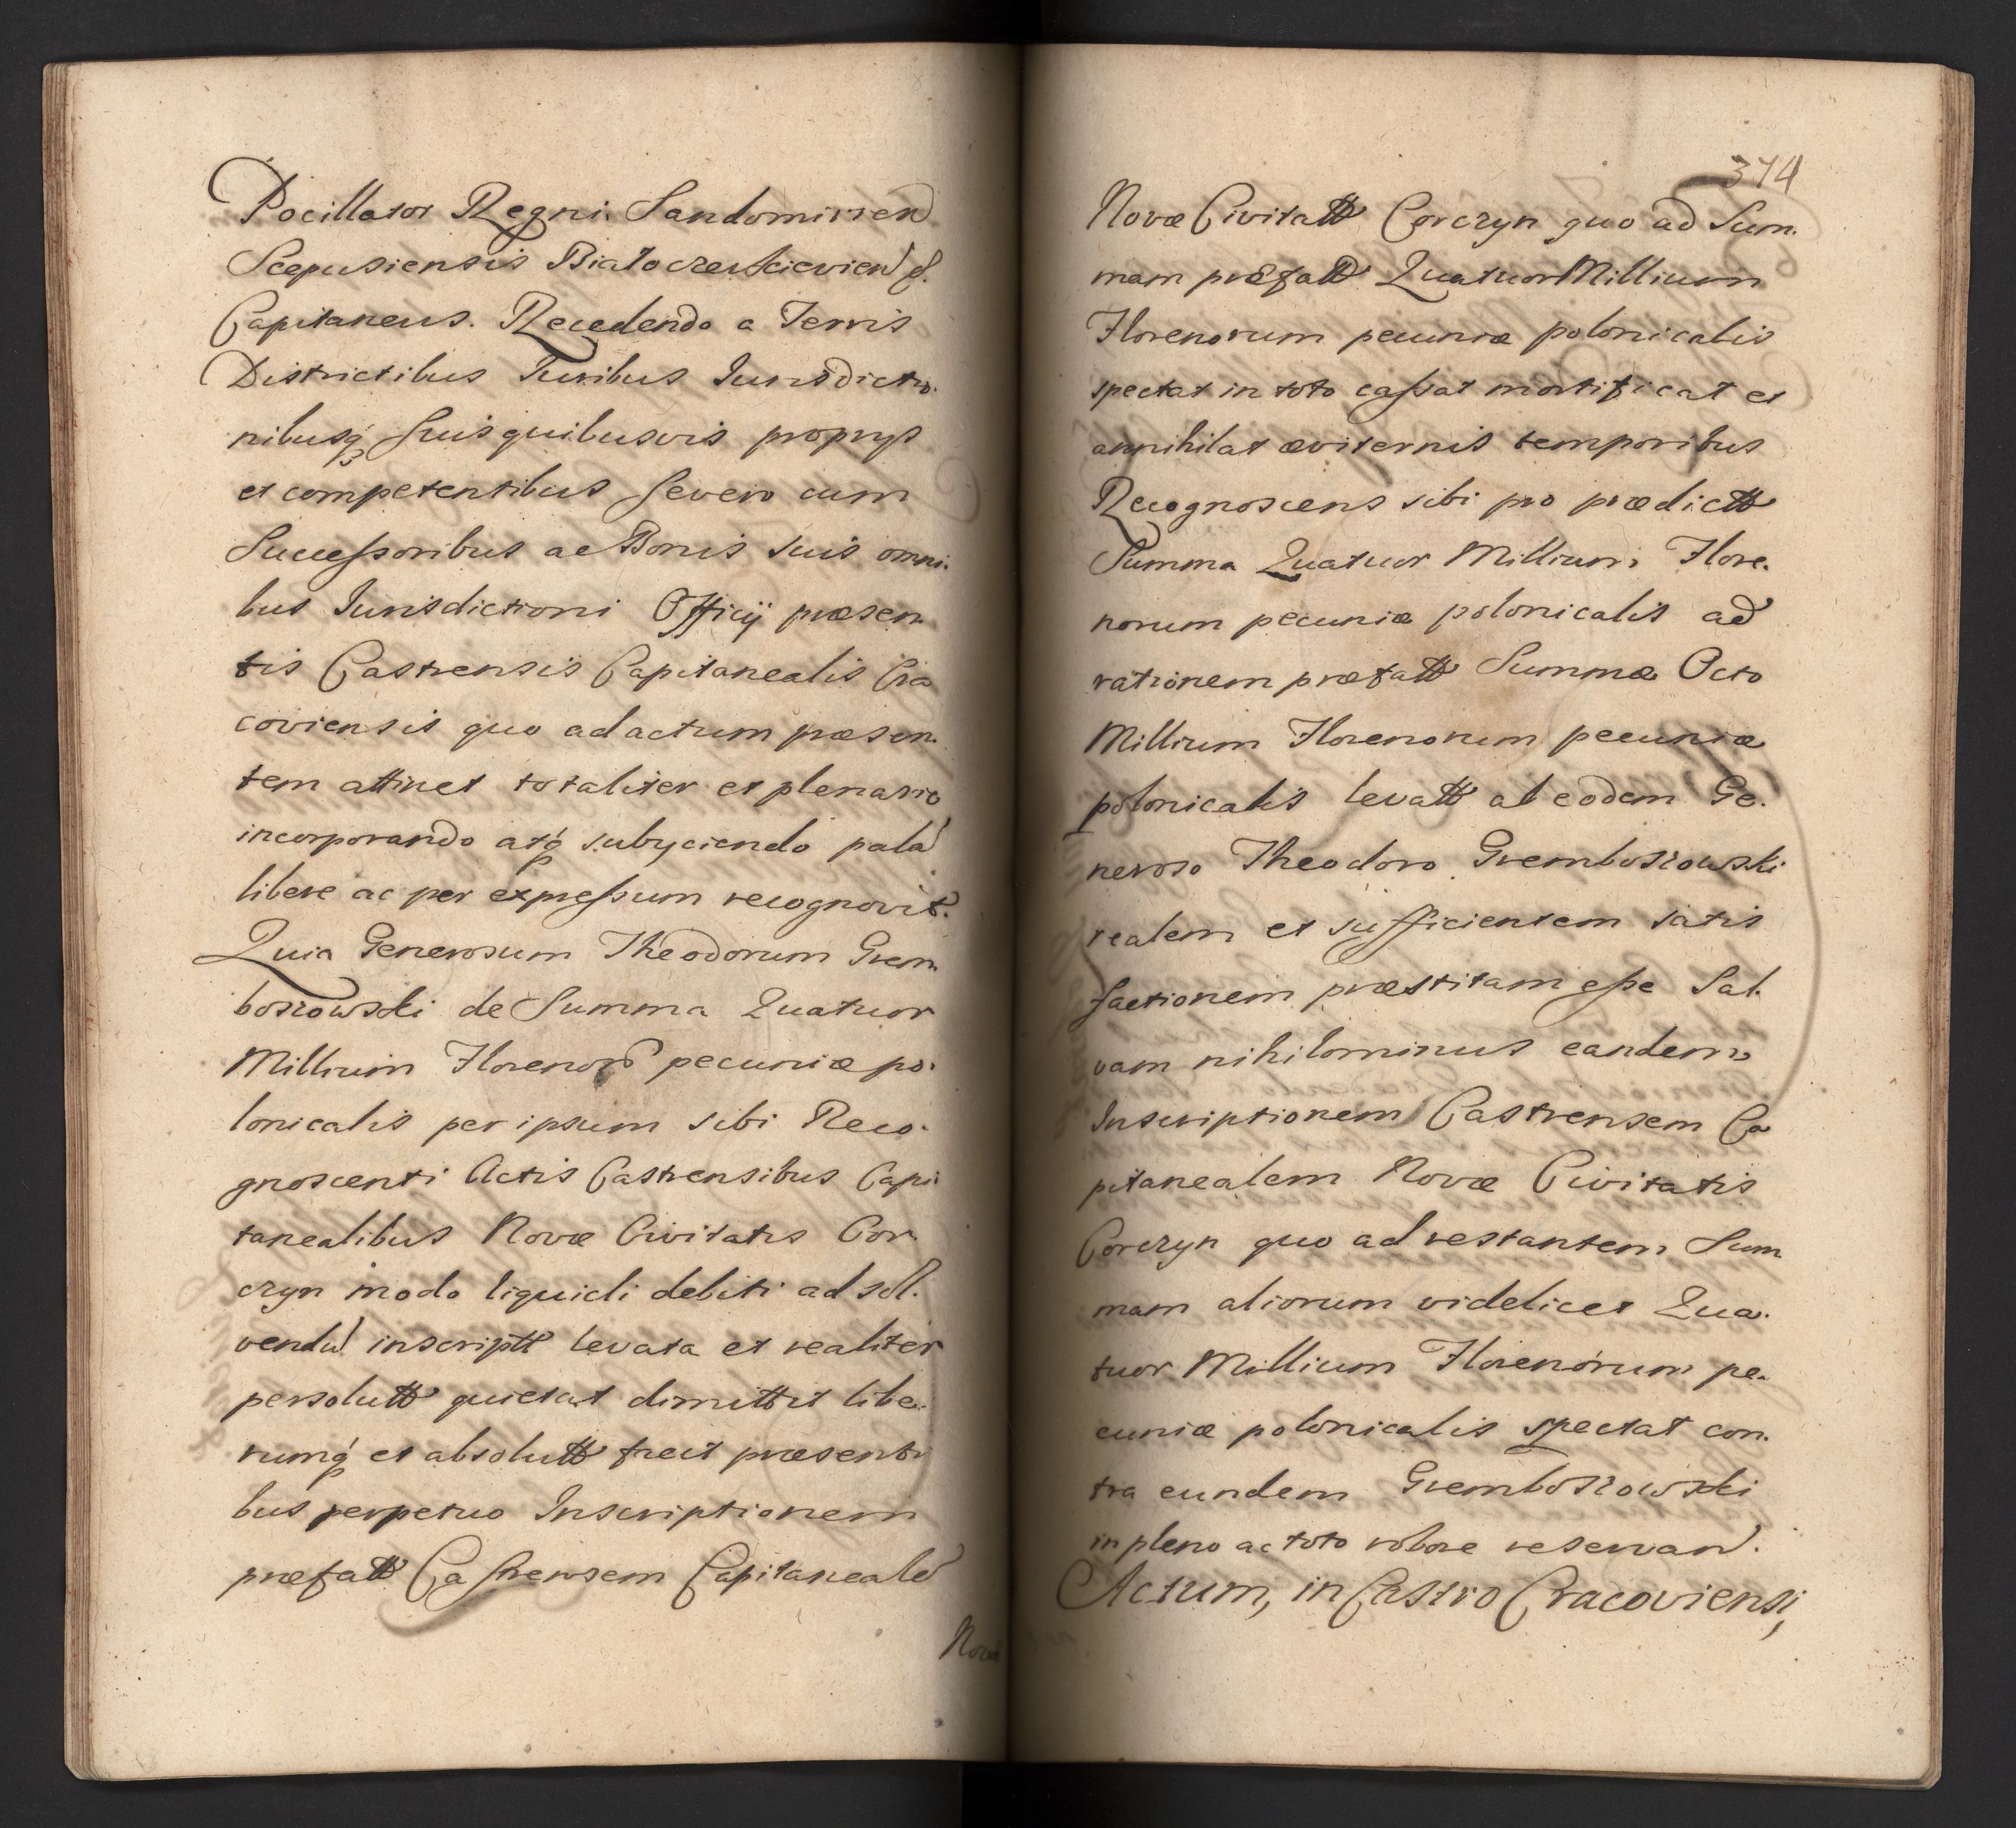 Pocillator Regni Sandomirien
Scepusiensis Białocerkievien &.
Capitaneus. Recedendo a Terris
Districtibus Iuribus Iurisdictio.
nibusq́ suis quibusvis proprys
et competentibus se vero cum
Successoribus ac Bonis suis omni.
bus Iurisdictioni Officij præsen
tis Castrensis Capitanealis Cra
coviensis quo ad actum præsen.
tem attinet totaliter et plenarie
incorporando atq́ subyciendo pala
libere ac per expressum recognovit.
Quia Generosum Theodorum Grem
boszowski de Summa Quatuor
Millium Florenor pecuniæ po.
lonicalis per ipsum sibi Reco.
gnoscenti Actis Castrensibus Capi
tanealibus Novæ Civitatis Cor.
czyn modo liquidi debiti ad sol.
vendu inscriptt levata et realiter
persolutt quietat dimittit libe.
rumq́ et absolutt facit præsenti
bus perpetuo Inscriptionem
præfatt Castrensem Capitaneale
Novæ
374
Novæ Civitatt Corczyn quo ad Sum.
mam præfatt Quatuor Millium
Florenorum pecuniæ polonicalis
spectat in toto cassat mortificat et
annihilat æviternis temporibus
Recognoscens sibi pro prædictt
Summa Quatuor Millium Flore.
norum pecuniæ polonicalis ad
rationem præfatt Summæ Octo
Millium Florenorum pecuniæ
polonicalis levatt ab eodem Ge.
neroso Theodoro Gremboszowski
realem et sufficientem satis
factionem præstitam esse Sal.
vam nihilominus eandem
Inscriptionem Castrensem Ca
pitanealem Novæ Civitatis
Corczyn quo ad restantem Sum
mam aliorum videlicet Qua.
tuor Millium Florenorum pe.
cuniæ polonicalis spectat con.
tra eundem Gremboszowski
in pleno ac toto robore reservan.
Actum, in Castro Cracoviensi,